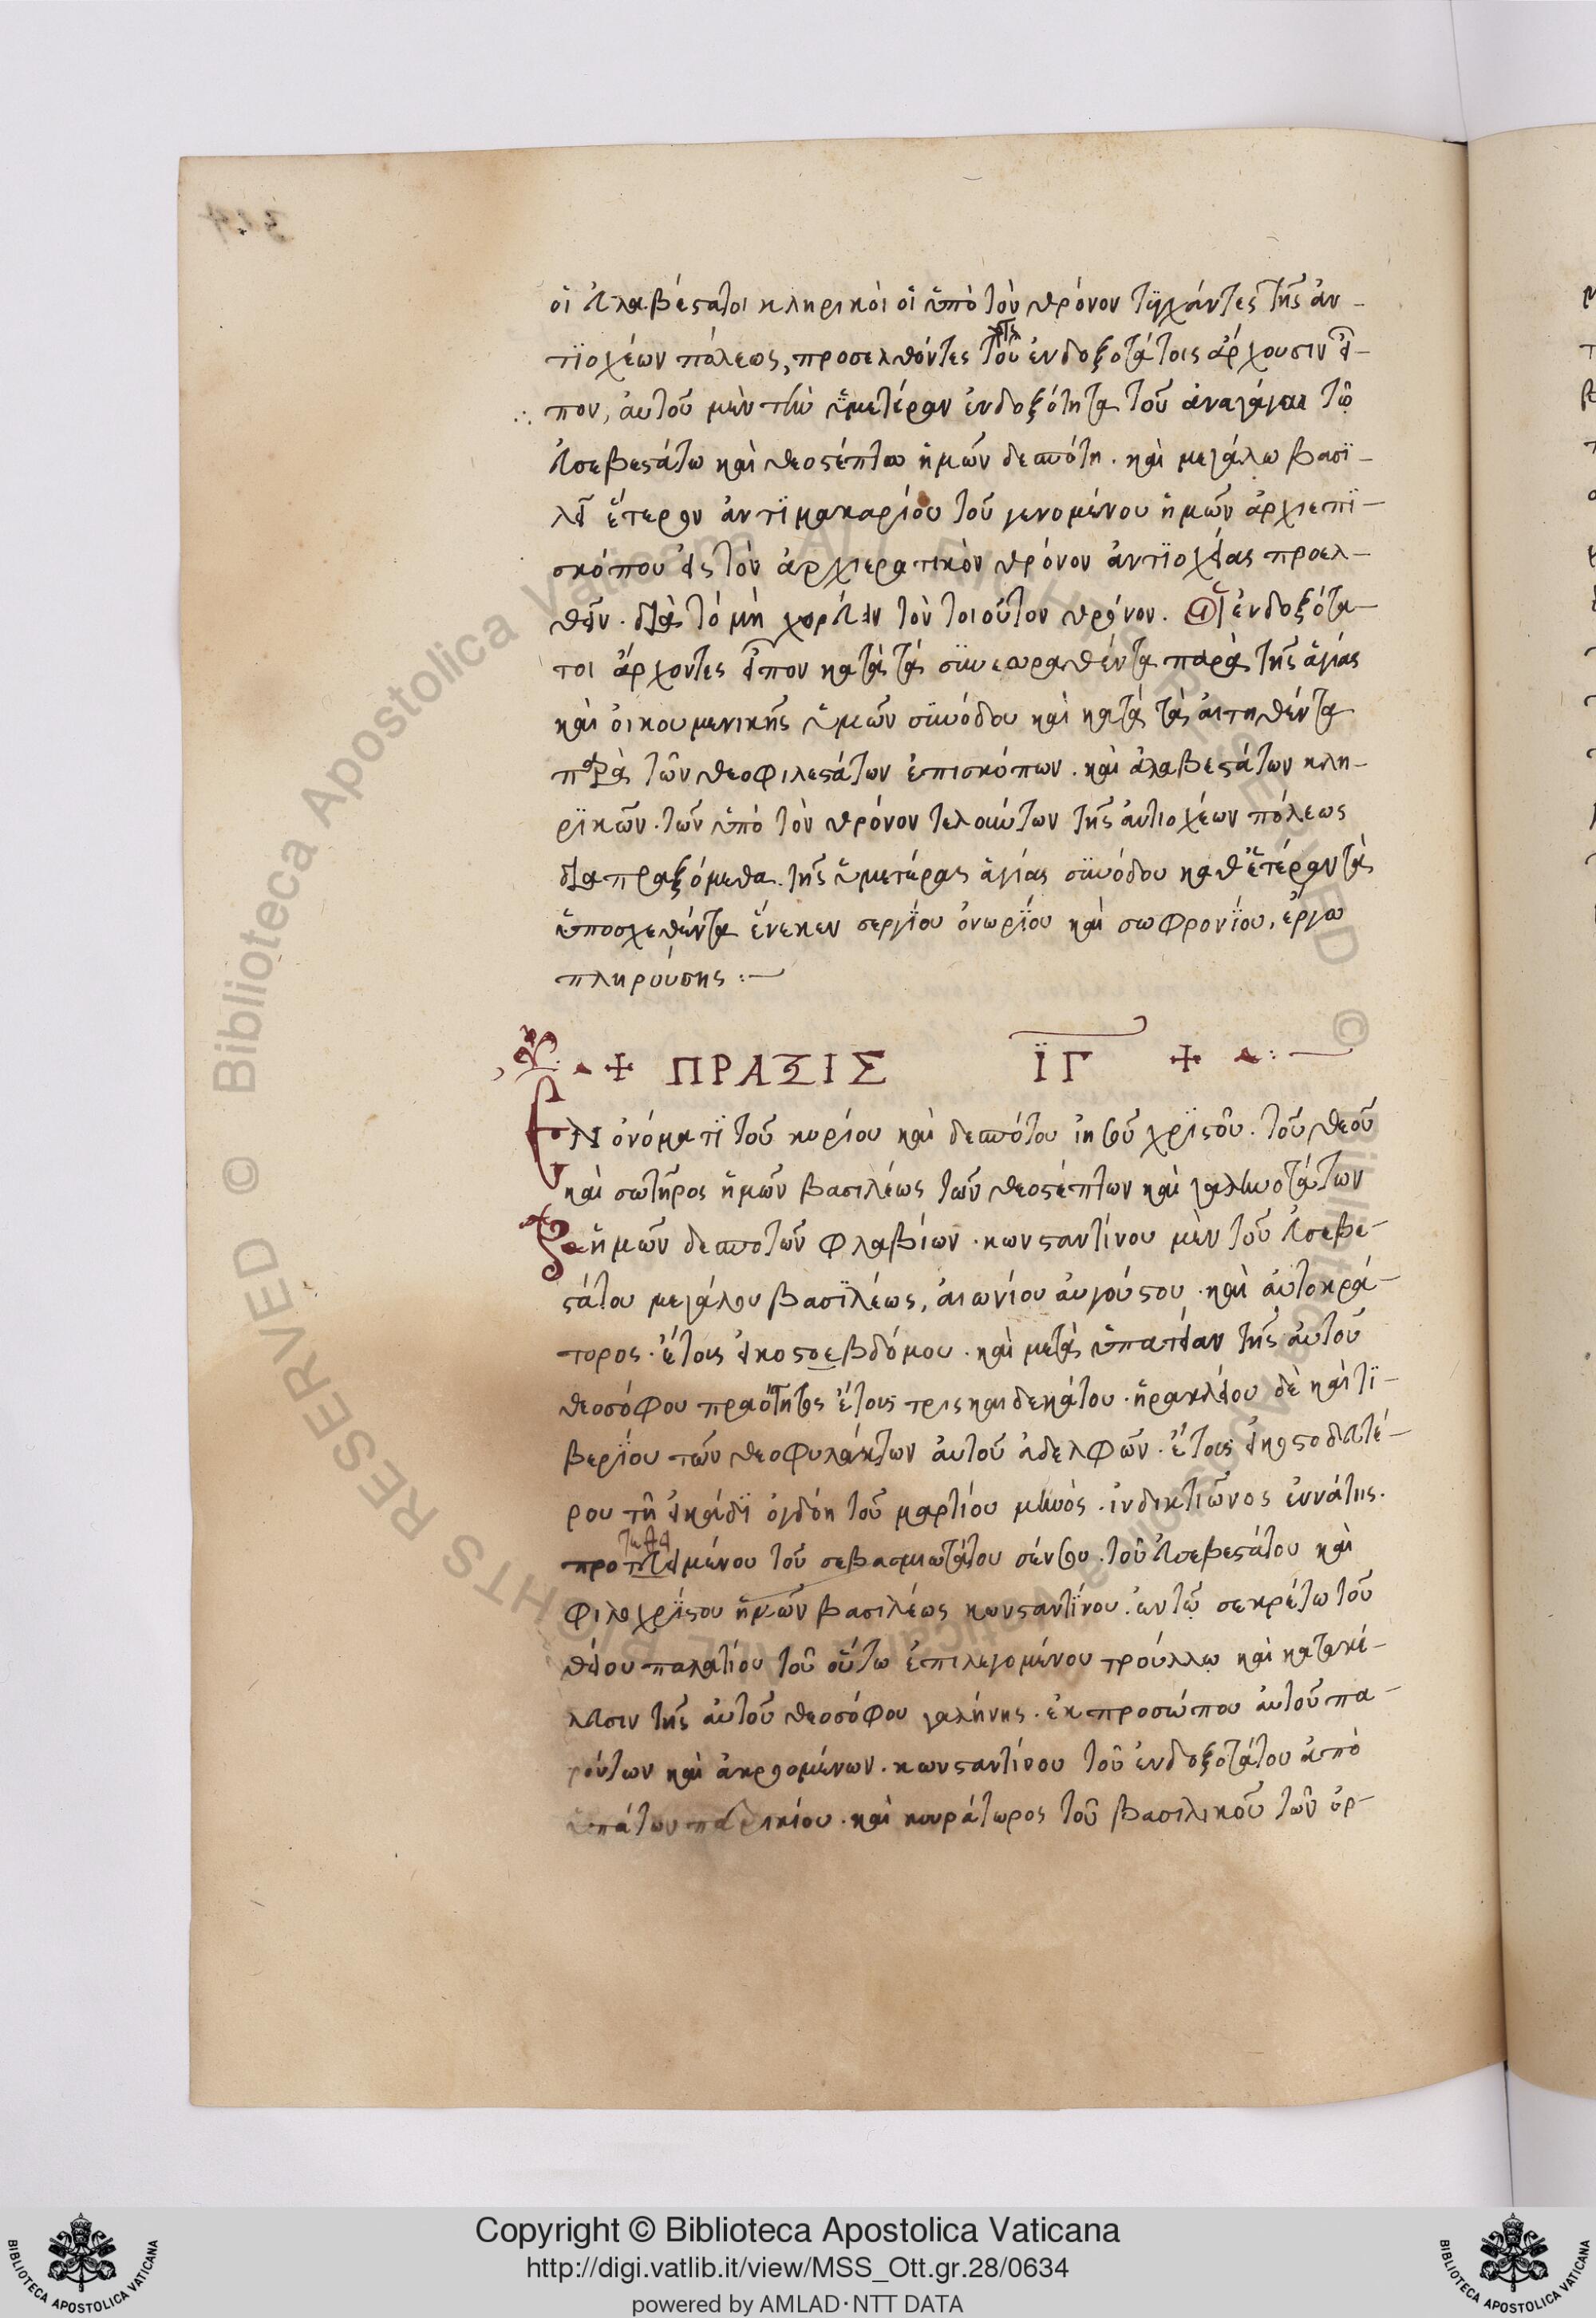 οἱ εὐλαβέστατοι κληρικοὶ οἱ ὑπὸ τὸν θρόνον τυγχάντες τῆς ἀν-
τϊοχέων πόλεως, προσελθόντες τοῖς ἐνδοξοτάτοις ἄρχουσιν εἶ-
πον, αὐτοῦ μὲν τὴν ὑμετέραν ἐνδοξότητα τοῦ ἀναγάγαι τῷ
εὐσεβεστάτω καὶ θεοστέπτω ἡμῶν δεσπότη. καὶ μεγάλω βασϊ-
λεῖ ἕτερον ἀντϊ μακαρίου τοῦ γενομένου ἡμῶν ἀρχιεπϊ-
σκόπου εἰς τὸν ἀρχιερατικὸν θρόνον ἀντϊοχείας προελ-
θεῖν. διὰ τὸ μὴ χηρεύειν τὸν τοιοῦτον θρόνον. Οἱ ἐνδοξότα-
τοι ἄρχοντες εἶπον κατὰ τὰ συνεωραθέντα παρὰ τῆς ἁγίας
καὶ οἰκουμενικῆς ὑμῶν συνόδου καὶ κατὰ τὰ αἰτηθέντα
παρὰ τῶν θεοφιλεστάτων ἐπισκόπων. καὶ εὐλαβεστάτων κλη-
ρϊκῶν. τῶν ὑπὸ τὸν θρόνον τελούντων τῆς ἀντιοχέων πόλεως
διαπραξόμεθα. τῆς ὑμετέρας ἁγίας συνόδου καθ' ἑτέραν τὰ
ὑποσχεθέντα ἕνεκεν σεργίου ὀνωρϊου καὶ σωφρονϊου, ἔργω
πληρούσης :—
+ ΠΡΑΞΙΣ ΪΓ +
Εν ὀνόματϊ τοῦ κυρίου καὶ δεσπότου ἰησοῦ χρϊστοῦ. τοῦ θεοῦ
καὶ σωτῆρος ἡμῶν βασιλέως τῶν θεοστέπτων καὶ γαληνοτάτων
ἡμῶν δεσποτῶν φλαβίων. κωνσταντίνου μὲν τοῦ εὐσεβε-
στάτου μεγάλου βασϊλέως, αἰωνίου αὐγούστου. καὶ αὐτοκρά-
τορος. ἔτους εἰκοστοεβδόμου. καὶ μετὰ ὑπατείαν τῆς αὐτοῦ
θεοσόφου πραότητος ἔτους τρισκαιδεκάτου. ἡρακλείου δὲ καὶ τϊ-
βερϊου τῶν θεοφυλάκτων αὐτοῦ ἀδελφῶν. ἔτους εἰκοστοδευτέ-
ρου τῆ εἰκάδϊ ὀγδόη τοῦ μαρτίου μηνὸς. ἰνδικτιῶνος ἐννάτης.
προ μένου τοῦ σεβασμιωτάτου σέντου. τοῦ εὐσεβεστάτου καὶ
φιλοχρϊστου ἡμῶν βασιλέως κωνσταντίνου. ἐν τῷ σεκρέτω τοῦ
θείου παλατίου τοῦ οὕτω ἐπιλεγομένου τρούλλω καὶ κατακέ-
λευσιν τῆς αὐτοῦ θεοσόφου γαλήνης. ἐκ προσώπου αὐτοῦ πα-
ρόντων καὶ ἀκροομένων. κωνσταντίνου τοῦ ἐνδοξοτάτου ἀπὸ
ὑπάτων πατρικίου. καὶ κουράτωρος τοῦ βασιλικοῦ τῶν ὁρ-
Copyright © Biblioteca Apostolica Vaticana
http://digi.vatlib.it/view/MSS_Ott.gr.28/0634
powered by AMLAD·NTT DATA